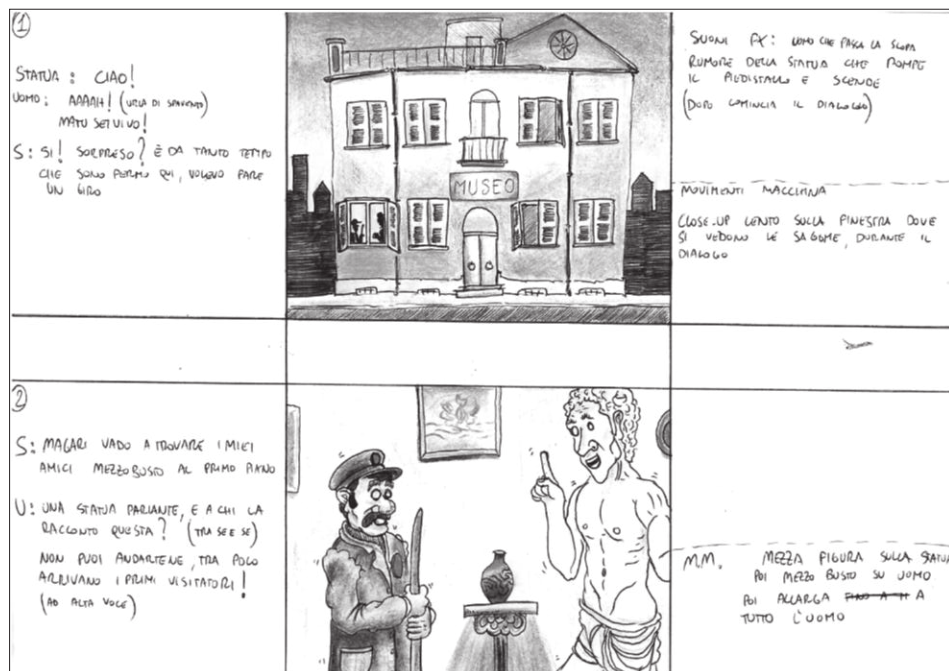 1
STATUA : CIAO!
UOMO : AAAAH! (URLA DI SPAVENTO)
MA TU SEI VIVO!
S: SI! SORPRESO? È DA TANTO TEMPO
CHE SONO FERMO QUI, VOLEVO FARE
UN GIRO
MUSEO
SUONI FX: UOMO CHE PASSA LA SCOPA
RUMORE DELLA STATUA CHE ROMPE
IL PIEDISTALLO E SCENDE
(DOPO COMINCIA IL DIALOGO)
MOVIMENTI MACCHINA
CLOSE-UP LENTO SULLA FINESTRA DOVE
SI VEDONO LE SAGOME, DURANTE IL
DIALOGO
2
S: MAGARI VADO A TROVARE I MIEI
AMICI MEZZO BUSTO AL PRIMO PIANO
U: UNA STATUA PARLANTE, E A CHI LA
RACCONTO QUESTA? (TRA SE E SE)
NON PUOI ANDARTENE, TRA POCO
ARRIVANO I PRIMI VISITATORI!
(AD ALTA VOCE)
M.M. MEZZA FIGURA SULLA STATUA
POI MEZZO BUSTO SU UOMO
POI ALLARGA A
TUTTO L'UOMO